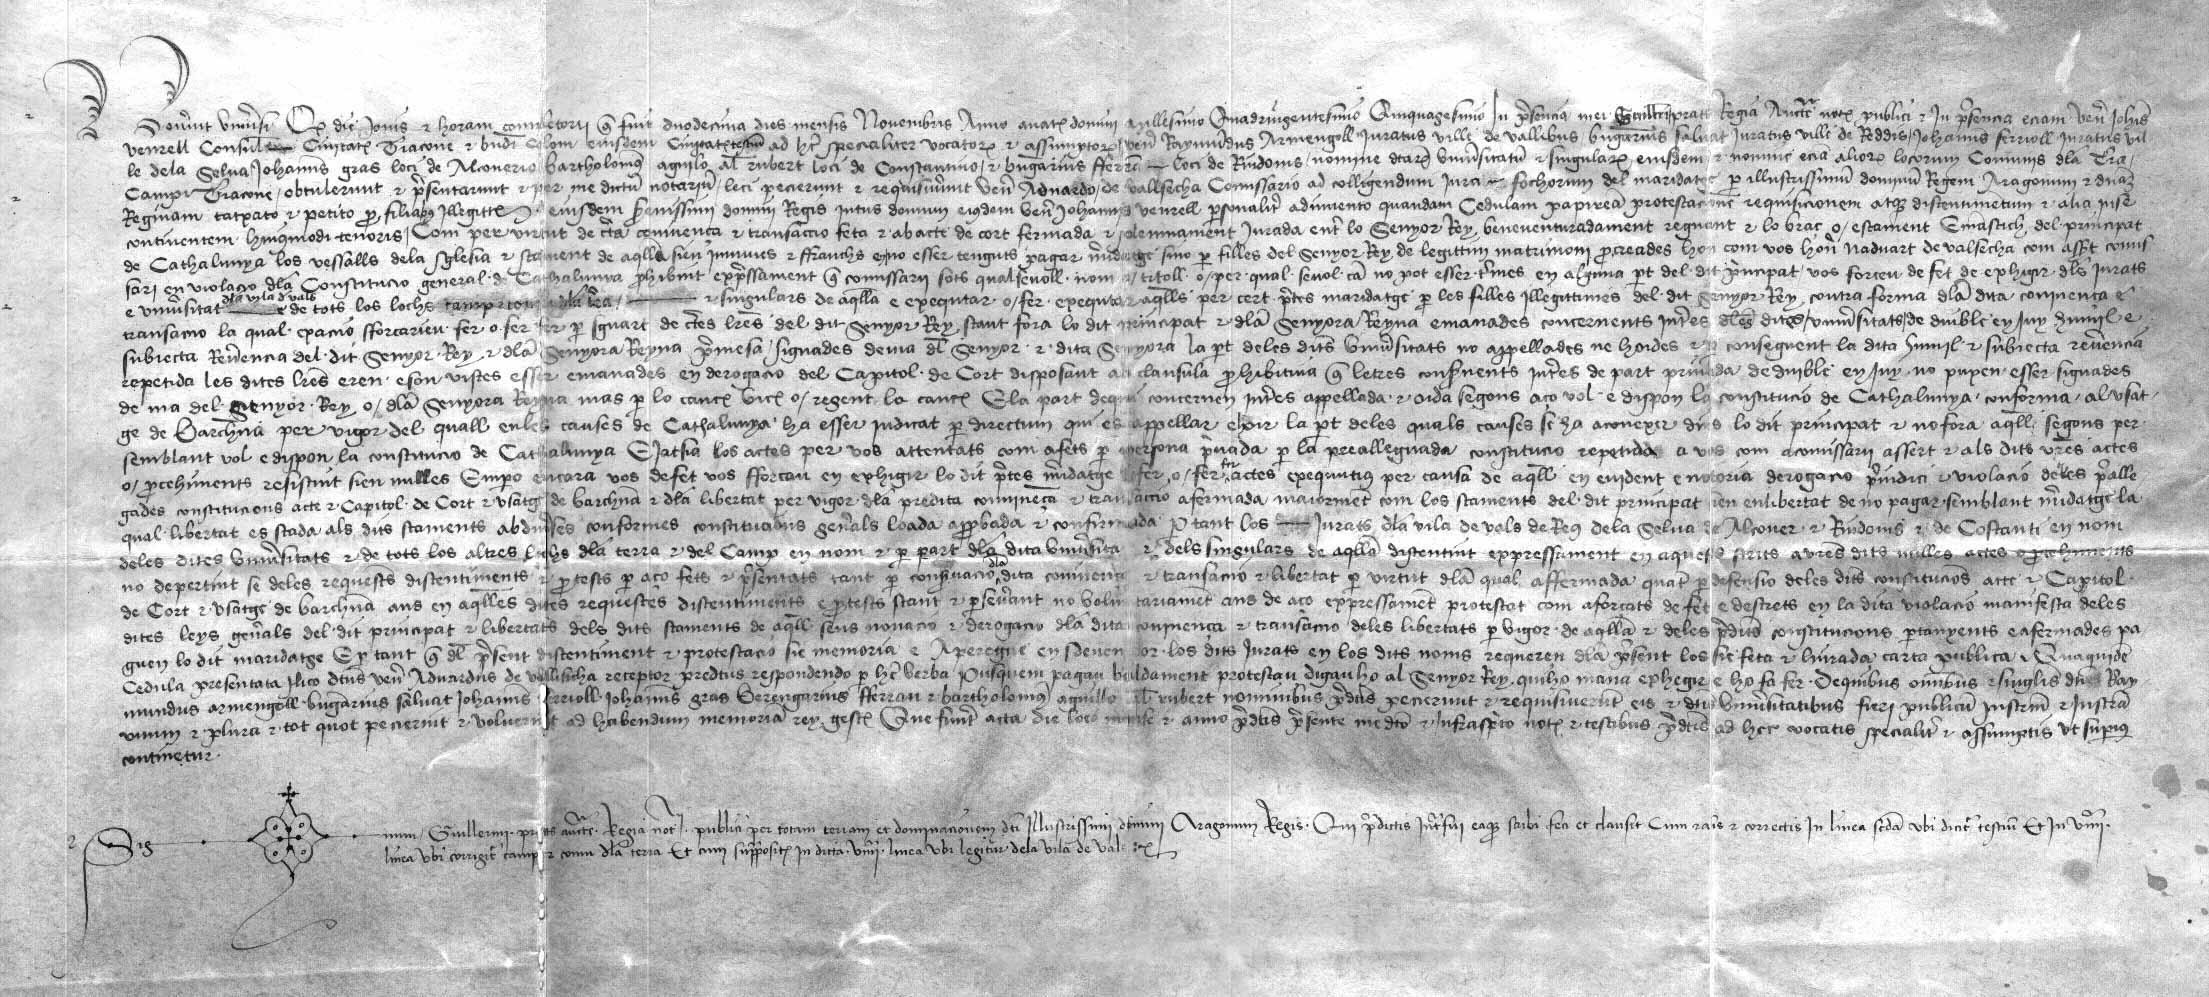 Noverint universi Q die Jovis et horam completorii q fuit duodecima dies mensis Novembris Anno a nat domini Millesimo Quadringentesimo Quinquagesimo In presencia mei Guillermi Regia Auctte not publici et In presencia eciam ven Johis
venrell Consul Civitat Tracone et eiusdem Civitat testiu ad hec specialiter vocator et assumptor ven Raymundus Armengoll Juratus ville de vallibus bngarius salvat Juratus ville de Reddis Johannes ferrioll Juratus vil
le dela Selva Johannes gras loci de Alconerio bartholomeus agullo al rubert loci de Constantino et bngarius fferra loci de Riudoms nomine dcar universitatu et singular eiusdem et nomine ecia alior locorum Comunis dla Tra
Campi Tracone obtulerunt et presentarunt et per me dictu notariu legi pecierunt et requisiverunt ven Aduardo de vallsecha Comissario ad colligendum Jura fochorum del maridatge per illustrissimum dominum Regem Aragonum et dnam
Reginam tatxato et petito pro filiabus illegittis eiusdem serenissimi domini Regis intus domum eiusdem ven Johannis venrell personaliter quandam Cedulam papirea protestacione requisicionem atque discentimentum et alia in se
continentem huiusmodi tenoris Com per virtut de certa convinenca et transaccio feta et ab acte de cort fermada et solemnament Jurada entre lo Senyor Rey benenventuradament regnant et lo brac o estament Ecclesiastich del principat
de Cathalunya los vessalls dela Sglesia et stament de aqlla sien inmunes et ffranchs e no esser tenguts pagar maridatge sino per filles del Senyor Rey de legittim matrimoni procreades hon com vos hon Naduart de valsecha com assert comis
sari en violacio dla Constitucio general de Cathalunya prohibint expressament q comissari sots qualsevoll nom o titoll o per qual sevol ca no pot esser trmes en alguna part del dit principat vos forceu de fet de exhigir dls Jurats
e universitat dla vila de vals e de tots los lochs camp et comu dla terra et singulars de aqlla e exequtar o fer exequtar aqlls per cert pretes maridatge per les filles Illegittimes del dit Senyor Rey contra forma dla dita convinenca e
transaccio la qual exaccio sforcarieu fer o fer fer per sguart de certes lres del dit Senyor Rey stant fora lo dit principat et dla Senyora Reyna emanades concernents intres dles dites universitats de duible en juy humil e
subiecta Reverencia del dit Senyor Rey et dla Senyora Reyna premesa signades de ma dl Senyor et dita Senyora la part deles dits universitats no appellades ne hoides et per conseguent la dita humil et subiecta reverencia
repetida les dites lres eren e son vistes esser emanades en derogacio del Capitol de Cort disposant ab clausula prohibitiva q letres concernents intres de part privada de duible en Juy no puxen esser signades
de ma del Senyor Rey o dla Senyora Reyna mas per lo canc vice o regent la canc E la part dequi concernen intres appellada et oida segons aco vol e dispon la constitucio de Cathalunya conforma al vsat
ge de Barchna per vigor del quall en les causes de Cathalunya ha esser iudicat per directum qui es appellar e hoir la part deles quals causes se ha aconexer dins lo dit principat et no fora aqll segons per
semblant vol e dispon la constitucio de Cathalunya E Jatsia los actes per vos attentats com a fets per persona privada per la preallegada constitucio repetida a vos com a comissari assert et als dits vres actes
o procehiments resistint sien nulles Empero encara vos de fet vos fforcau en exhigir lo dit pretes maridatge e fer o fer fer actes exequtius per causa de aqll en evident e notoria derogacio prejudici et violacio deles pralle
gades constitucions acte et Capitol de Cort et vsatge de barchna et dla libertat per vigor dla predita convinenca et transaccio afermada maiorment com los staments del dit principat sien en libertat de no pagar semblant maridatge la
qual libertat es stada als dits staments ab diverses conformes constitucions generals loada approbada et confirmada Per tant los Jurats dla vila de vals de Reus dela Selva de Alcover et Riudoms et de Costanti en nom
deles dites universitats et de tots los altres lochs dla terra et del Camp en nom et per part dla dita universitat et dels singulars de aqlla discentint expressament en aquests scrits a vres dits nulles actes o procehiments
no depertint se deles requests discentiments et protests per aco fets et presentats tant per conservacio dla dita convinenca et transaccio et libertat per virtut dla qual affermada quant per defensio deles dits constitucions acte et Capitol
de Cort et vsatge de barchna ans en aqlles dites requestes discentiments e protests stant et perseverant no voluntariament ans de aco expressament protestat com a forcats de fet e destrets en la dita violacio manifesta deles
dites leys generals del dit principat et libertats dels dits staments de aqll sens novacio et derogacio dla dita convinenca et transaccio deles libertats per vigor de aqlla et deles predites constitucions pertanyents e afermades pa
guen lo dit maridatge E per tant q dl present discentiment et protestacio sie memoria e Aparegue en sdevenidor los dits Jurats en los dits noms requeren dla present los sie feta et liurada carta publica Quaquidem
Cedula presentata Ilico dictus ven Aduardus de vallsecha receptor predictus respondendo per hec verba Pusquem pagau baldament protestau digau ho al Senyor Rey quiho mana exhegir e ho fa fer De quibus omnibus et singulis dicti Ray
mundus armengoll bngarius salvat Johannes ferrioll Johannes gras Berengarius fferrau et bartholomeus agullo al rubert nominibus predictis pecierunt et requisiverunt eis et dictis universitatibus fieri publicu Instrum et Instra
unum et plura et tot quot pecierint et voluerint ad habendum memoria rey geste Que funt acta die loco mense et anno predictis presente me dicto et infrascripto not et testibus predictis ad hec vocatis specialiter et assumptis vt superius
continetur
Sig num Guillermi auctte Regia not publici per totam terram et dominacionem dti Illustrissimi domini Aragonum Regis Qui predictis interfui eaque scribi feci et clausit Cum rasis et correctis In linea scda vbi dicit testiu Et In viiii
linea vbi corrigit camp et comu dla terra Et cum supposit In dicta viiii linea vbi legitur dela vila de vals